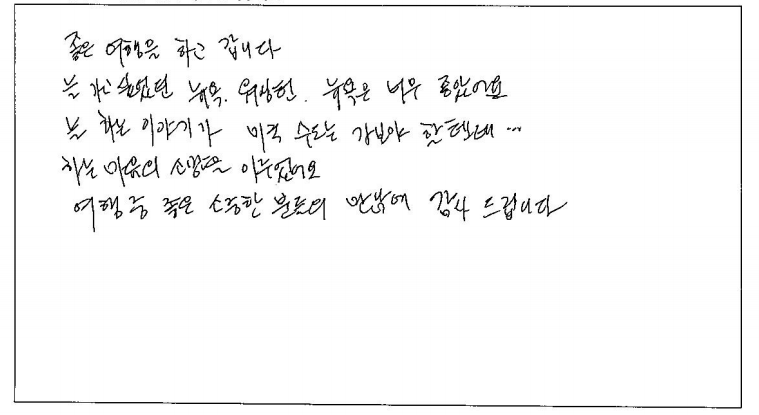 좋은 여행을 하고 갑니다
늘 가고 싶었던 뉴욕. 워싱턴. 뉴욕은 너무 좋았어요
늘 하는 이야기가 미국 수도는 가보야 할텐데 ...
하는 마음의 소망을 이루었어요
여행 중 좋은 소중한 분들의 만남에 감사 드립니다